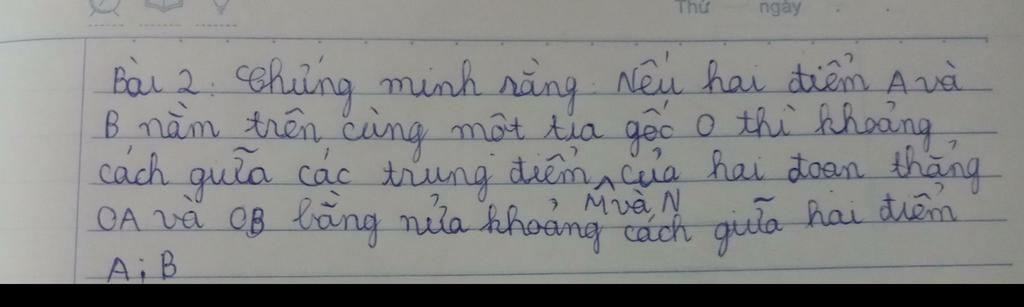 Thứ ngày
Bài 2: Chứng minh rằng: Nếu hai điểm A và
B nằm trên cùng một tia gốc O thì khoảng
cách giữa các trung điểm ^ của hai đoan thẳng
M và N
OA và OB bằng nửa khoảng cách giữa hai điểm
A; B